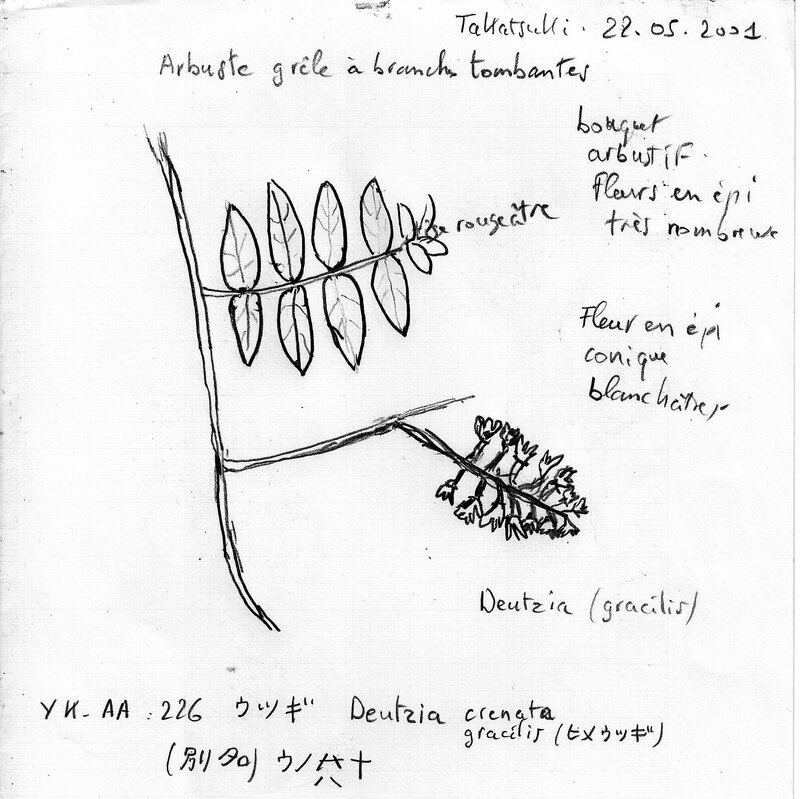 Takatsuki. 22.05.2001
Arbuste grêle à branchs tombantes
bouquet
arbustif.
Fleurs en épi
très nombreuse
rougeâtre
Fleur en épi
conique
blanchâtres
Deutzia (gracilis)
YK-AA : 226 ウツギ Deutzia crenata
gracilis (ヒメウツギ)
(別名) ウノ